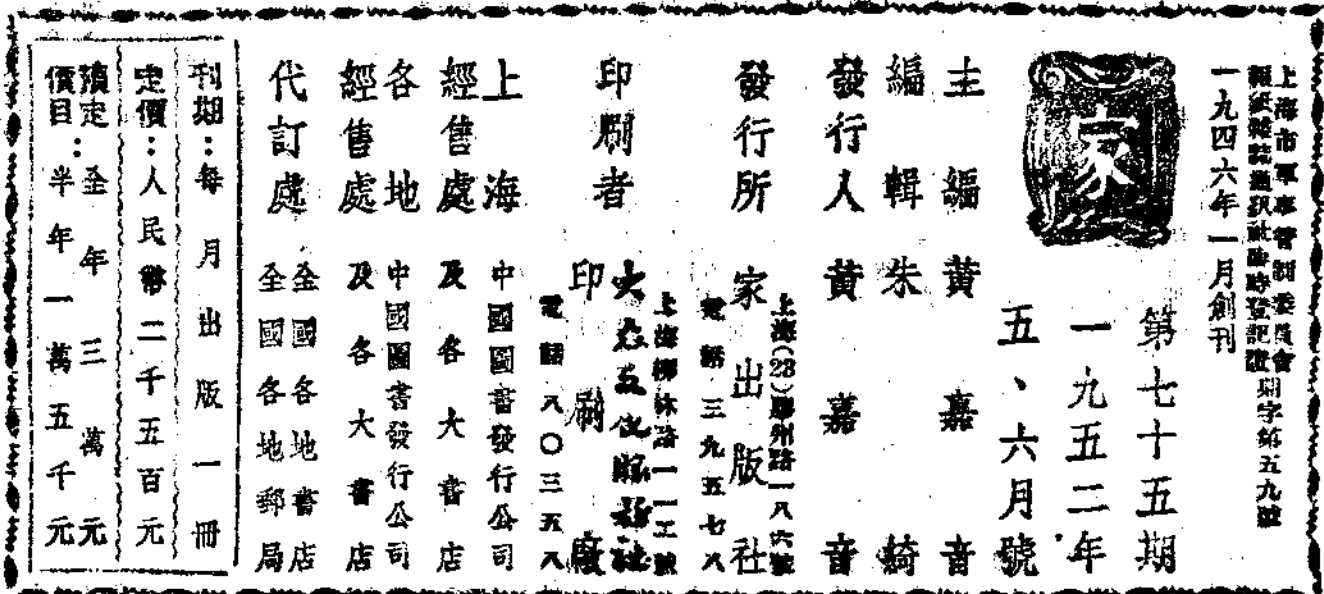 上海市軍事管制委員會
報紙雜誌通訊社臨時登記證期字第五九號
一九四六年一月創刊
家
第七十五期
一九五二年
五、六月號
主編 黃嘉音
編輯 朱綺
發行人 黃嘉音
發行所 家出版社
上海(23)膠州路一八六號
電話 三九五七八
印刷者
印刷廠
上海柳林路一一二號
電話 八〇三五八
上海經售處
中國圖書發行公司
及各大書店
各地經售處
中國圖書發行公司
及各大書店
代訂處
全國各地書店
全國各地郵局
刊期：每月出版一冊
定價：人民幣二千五百元
預定價目：
全年三萬元
半年一萬五千元